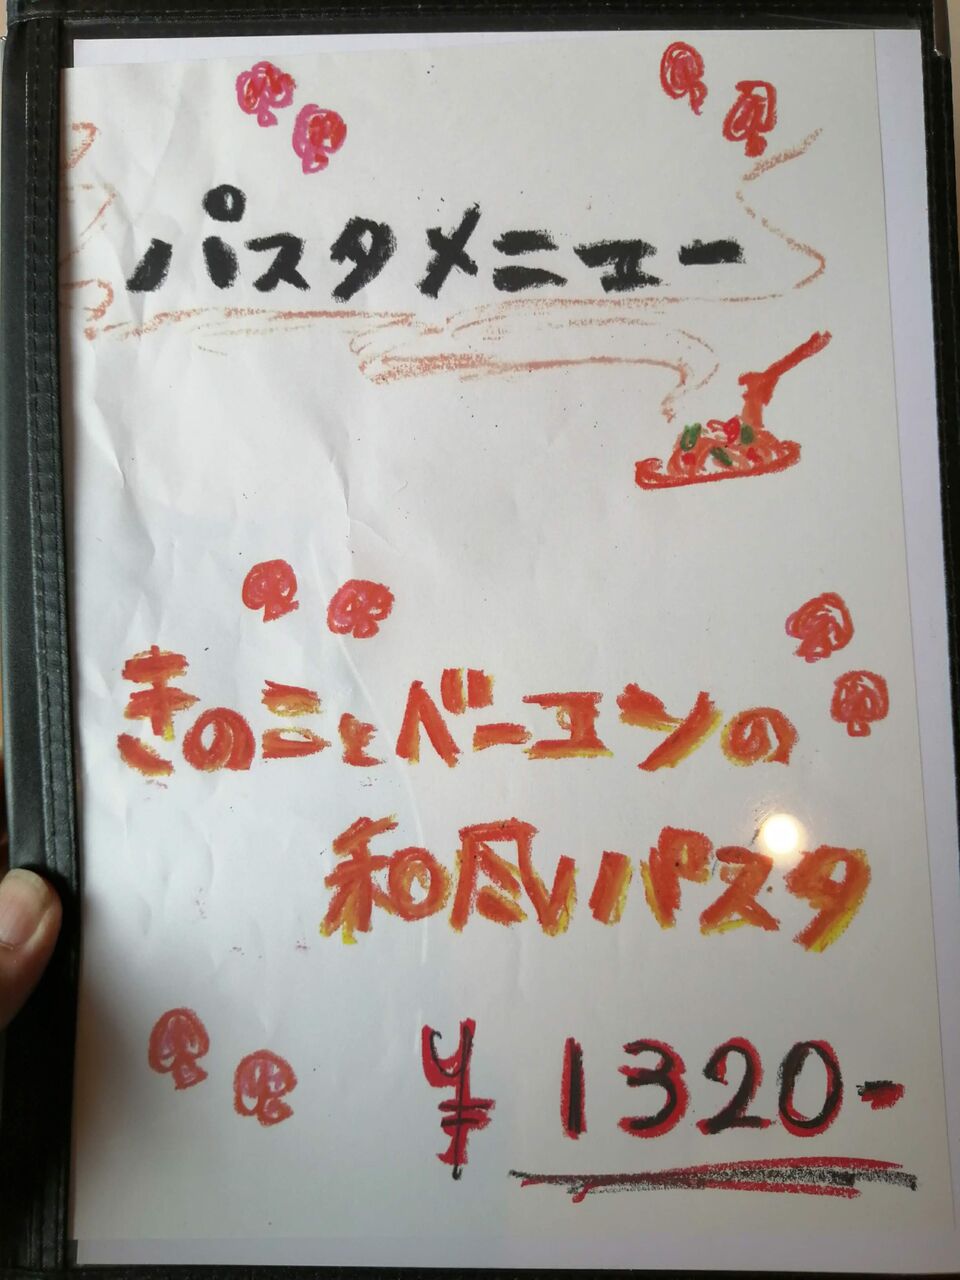 パスタメニュー
きのことベーコンの
和風パスタ
¥1320-